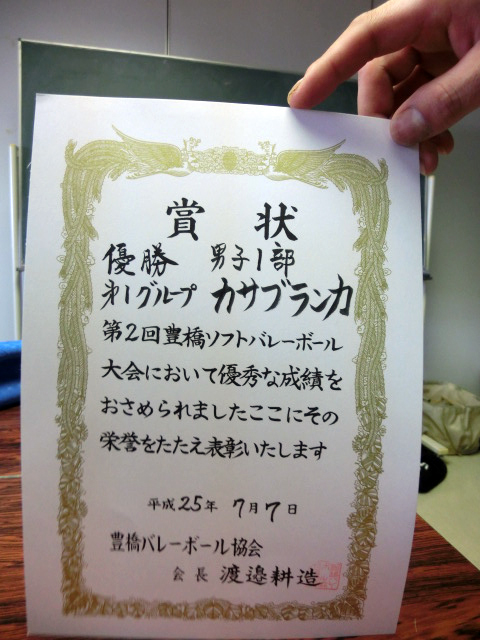 賞状
優勝 男子1部
第1グループ カサブランカ
第2回豊橋ソフトバレーボール
大会において優秀な成績を
おさめられましたここにその
栄誉をたたえ表彰いたします
平成25年 7月7日
豊橋バレーボール協会
会長 渡邉耕造